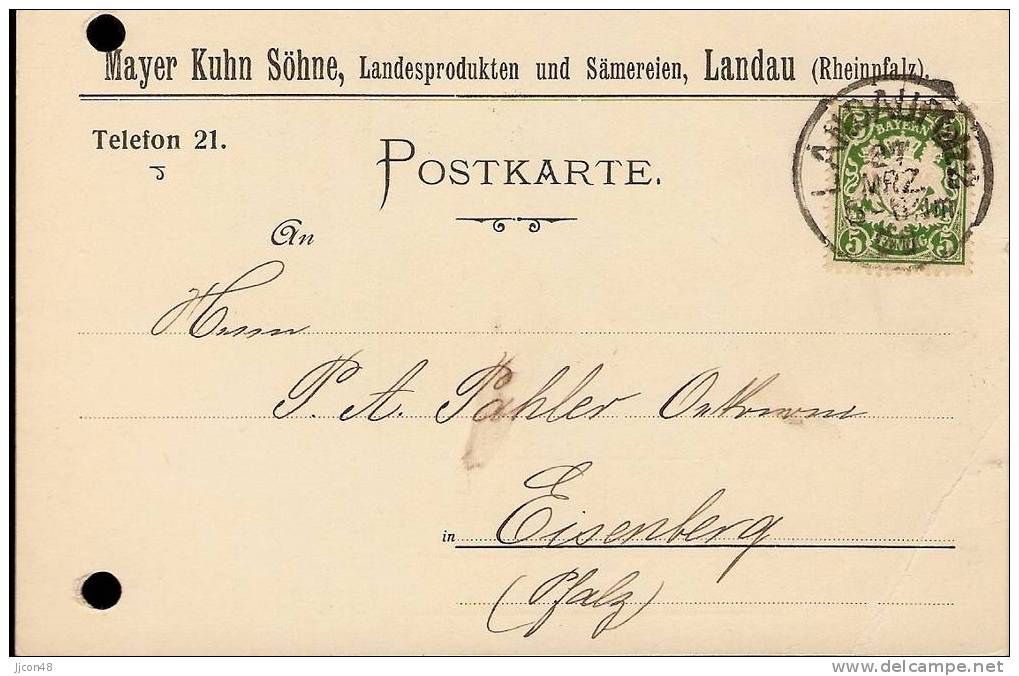 Mayer Kuhn Söhne, Landesprodukten und Sämereien, Landau (Rheinpfalz).
Telefon 21.
POSTKARTE.
BAYERN
LANDAU PFALZ
27
MRZ
5 PFENNIG 5
An
Herrn
P. A. Pahler Oekonom
in Eisenberg
(Pfalz)
Jjcon48
www.delcampe.net